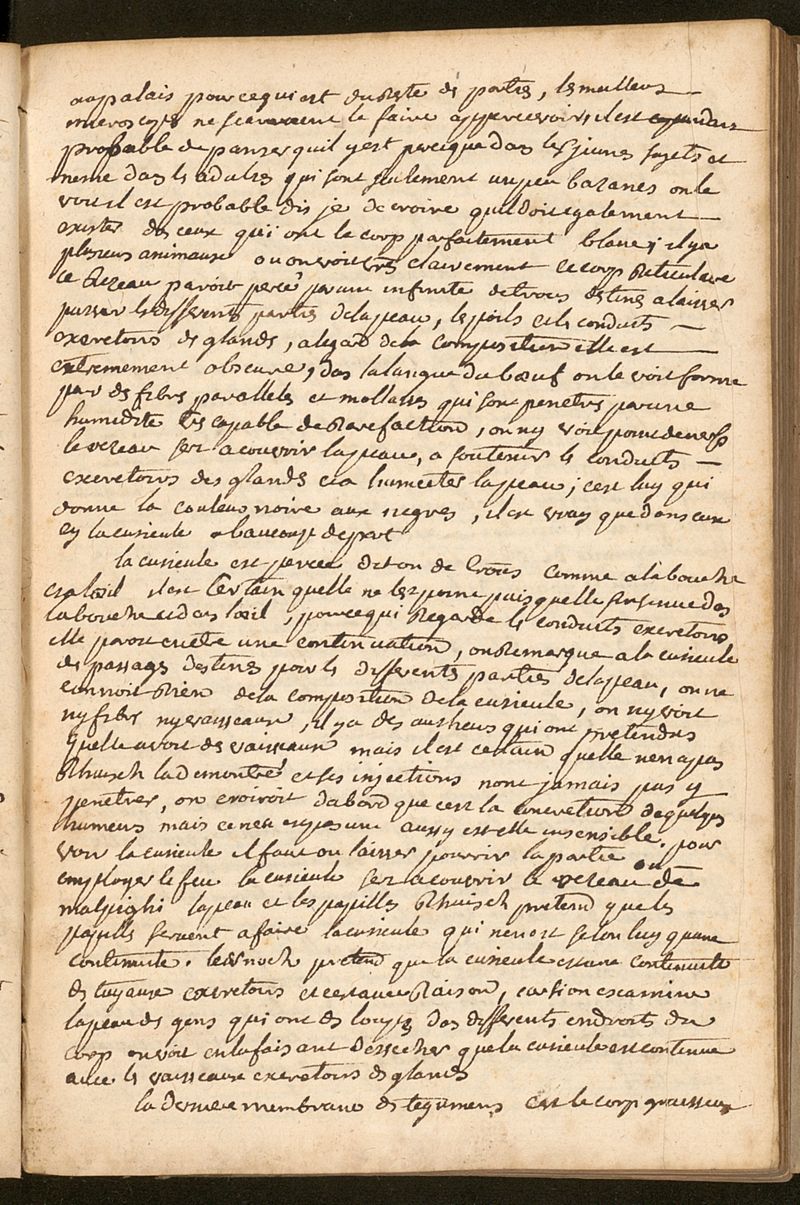 au palais pour ce qui est du reste des parties, les meilleurs
microscopes ne scauroient le faire appercevoir, il est cependant
probable de panser quil y est percique dans les jeunes sujets et
meme dans les adultes qui sont seulement un peu bazanes on le
voit il est probable dis je de croire quil doit egalement
exister des ceux qui ont le corp parfaitement blanc; il y a
plusieurs animaux ou on voit tres clairement le corp reticulaire
ce rezeau paroit percé par une infinite de trous destines a laisser
passer les differents parties de la peau, les poils et les conduits
excretoirs des glands, a legard de la composition elle est
extremement obscure, dans la langue du bœuf on le voit forme
par des fibres paralleles et mollasses qui sont penetres par une
humidite tres capable de rarefaction, on ny voit point de nerfs
le rezeau sert a couvrir la peau, a soutenir les conduits
excretoirs des glands et a humecter la peau; cest luy qui
donne la couleur noire aux negres, il est vray que dans eux
cy la cuticule a baucoup de part
la cuticule est percee dit on de trous comme a la bouche
et a lœil il est certain quelle ne lest point puis quelle sinsinue dans
la bouche et dans lœil, pour ce qui regarde les conduits excretoirs
elle paroit en etre une continuation, on remarque a la cuticule
des passages destines pour les differents parties de la peau, on ne
connoit rien de la composition de la cuticule, on ny voit
ny fibres ny vaisseaux, il y a des autheurs qui ont pretendus
quelle avoit des vaisseaux mais il est certain quelle nen a pas
Rhuisch la demontré et ses injections nont jamais pus y
penetrer, on croiroit dabord que cest la concretion de quelques
humeurs mais ce nen est pas une aussy est elle insensible. pour
voir la cuticule il faut ou laisser pourrir la partie ou
employer le feu la cuticule sert a couvrir le rezeau de
malpighi la peau et les papilles Rhuisch pretend que les
papilles servent a faire la cuticule qui nen est selon luy quune
continuite. lewnoch pretend que la cuticule est une continuite
de tuyaux excretoirs et cest avec raison, car si on escamine
la peau des gens qui ont des loupes dans differents endroits du
corp on voit en la faisant dessecher que la cuticule est continue
avec les vaisseaux excretoirs des glands
la derniere membrane des tegumens est le corp graisseux